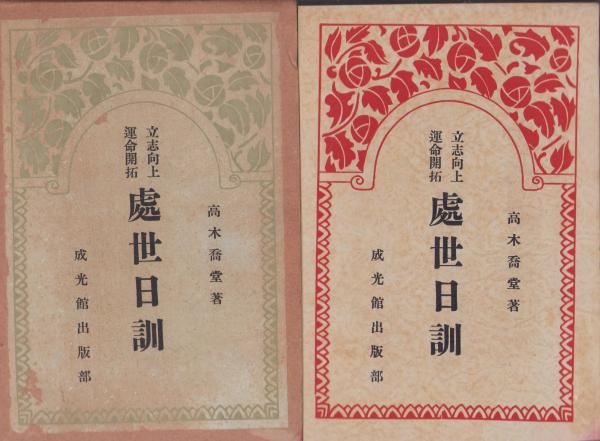 高木喬堂著
立志向上
運命開拓
處世日訓
成光館出版部
高木喬堂著
立志向上
運命開拓
處世日訓
成光館出版部